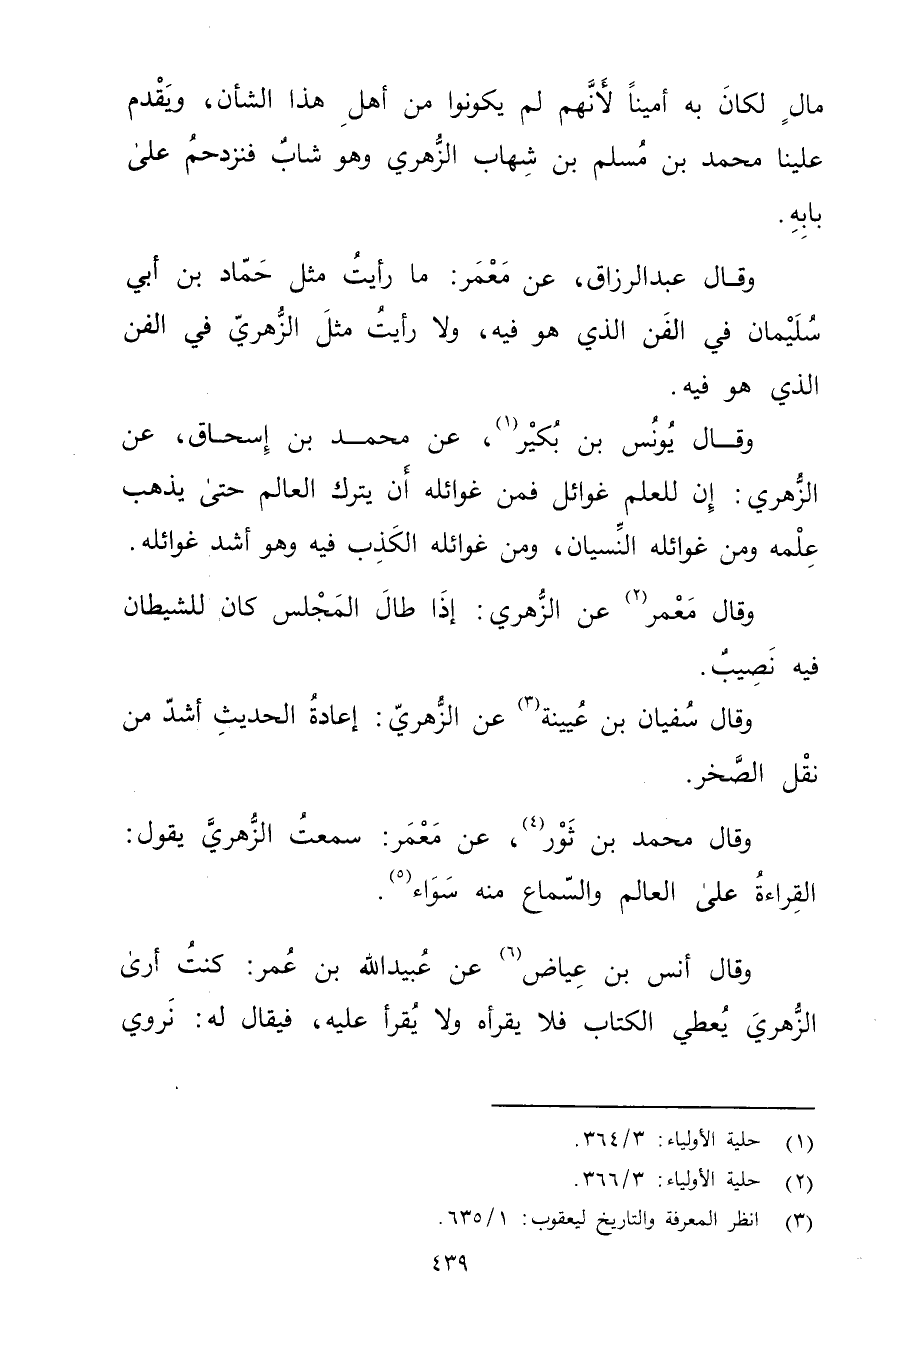 مالٍ لكانَ به أميناً لأَنَّهم لم يكونوا من أهلِ هذا الشأن، ويَقْدم
علينا محمد بن مُسلم بن شِهاب الزُّهري وهو شابٌ فنزدحمُ علىٰ
بابِهِ.
وقال عبدالرزاق، عن مَعْمَر: ما رأيتُ مثل حَمّاد بن أبي
سُلَيْمان في الفَن الذي هو فيه، ولا رأيتُ مثلَ الزُّهريّ في الفن
الذي هو فيه.
وقال يُونُس بن بُكَيْر(١)، عن محمد بن إسحاق، عن
الزُّهري: إِن للعلم غوائل فمن غوائله أَن يترك العالم حتىٰ يذهب
عِلْمه ومن غوائله النِّسيان، ومن غوائله الكَذِب فيه وهو أشد غوائله.
وقال مَعْمر(٢) عن الزُّهري: إذَا طالَ المَجْلس كان للشيطان
فيه نَصِيبٌ.
وقال سُفيان بن عُيينة(٣) عن الزُّهريّ: إعادةُ الحديثِ أشدّ من
نقْل الصَّخر.
وقال محمد بن ثَوْر(٤)، عن مَعْمَر: سمعتُ الزُّهريَّ يقول:
القِراءةُ علىٰ العالم والسّماع منه سَوَاء(٥).
وقال أنس بن عِياض(٦) عن عُبيدالله بن عُمر: كنتُ أرىٰ
الزُّهريَ يُعطي الكتاب فلا يقرأه ولا يُقرأ عليه، فيقال له: نَروي
(١) حلية الأولياء: ٣/ ٣٦٤.
(٢) حلية الأولياء: ٣/ ٣٦٦.
(٣) انظر المعرفة والتاريخ ليعقوب: ١/ ٦٣٥.
٤٣٩